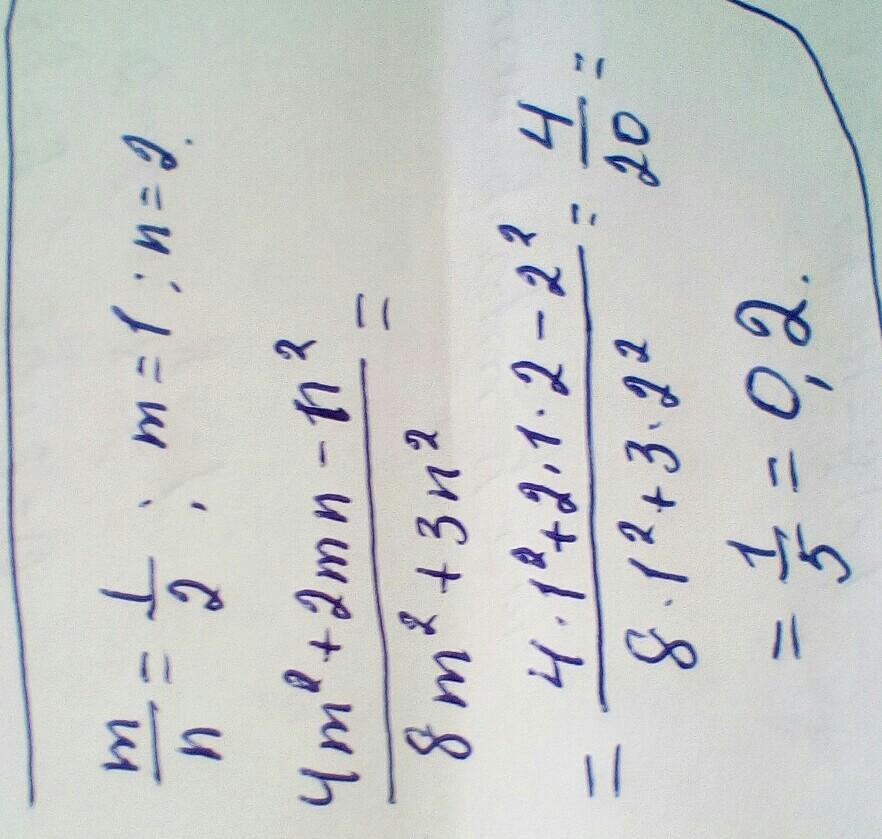 m/n = 1/2 ; m = 1 ; n = 2.
(4m² + 2mn - n²)/(8m² + 3n²) =
= (4·1² + 2·1·2 - 2²)/(8·1² + 3·2²) = 4/20 =
= 1/5 = 0,2.